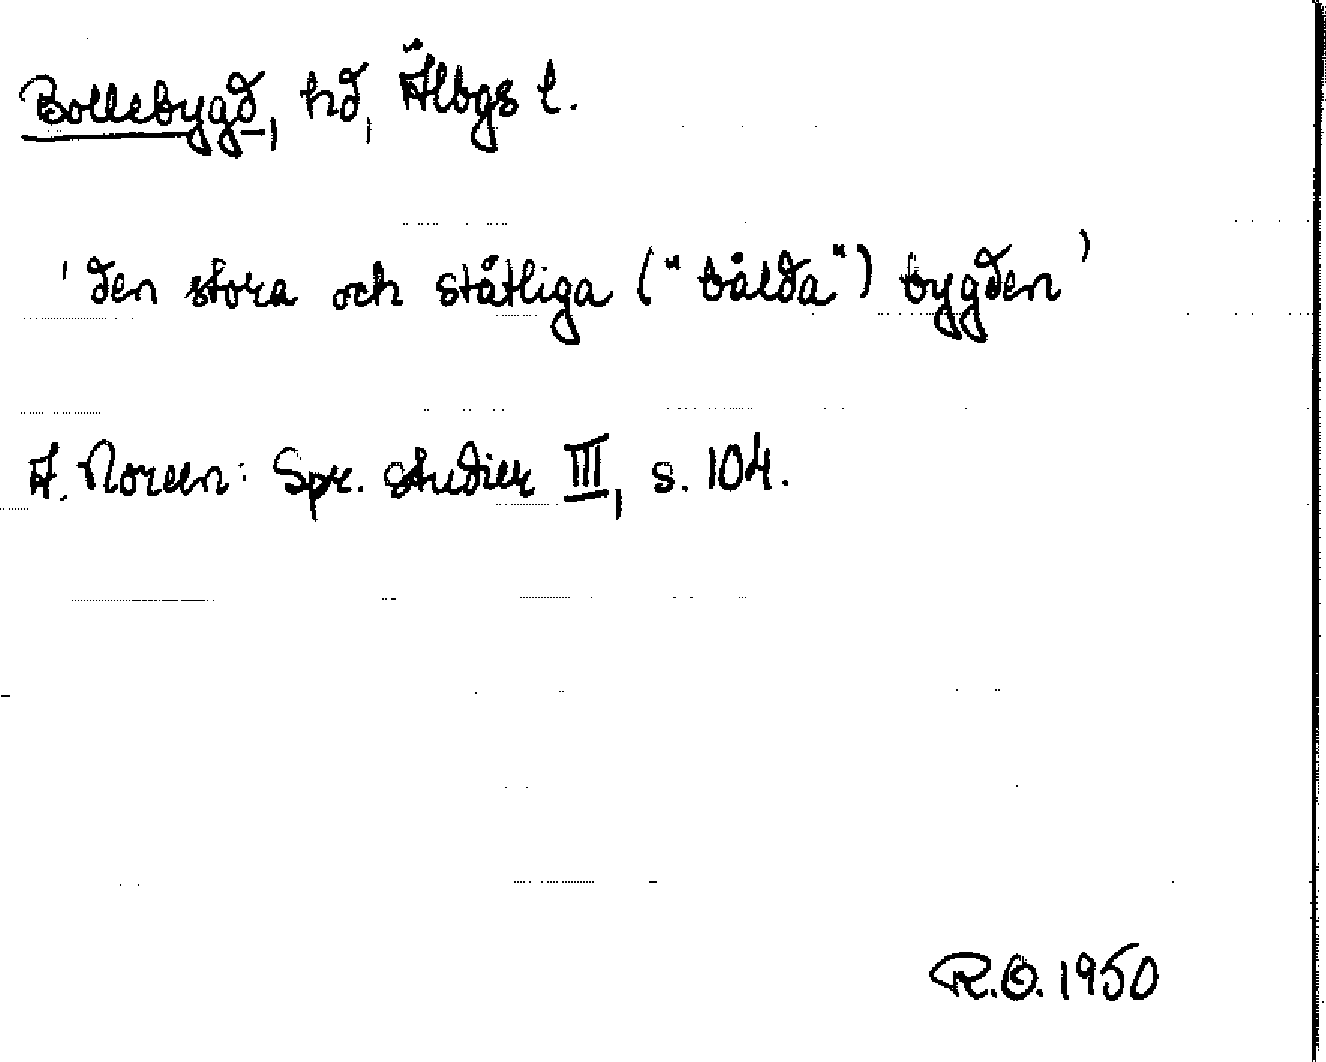 Bollebygd, hd, Älbgs l.
'den stora och ståtliga ("bålda") bygden'
A. Noreen: Spr. studier III, s. 104.
R.O. 1950